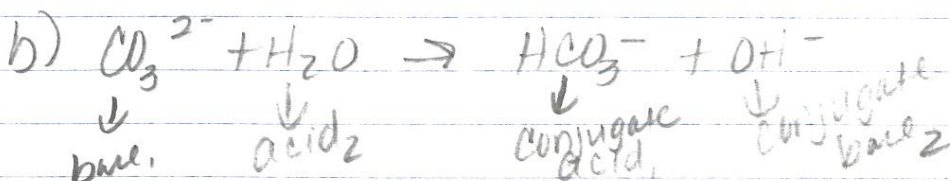 b) CO₃²⁻ + H₂O → HCO₃⁻ + OH⁻
↓ ↓ ↓ ↓
base₁ acid₂ conjugate acid₁ conjugate base₂